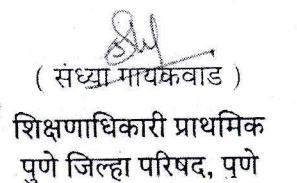 ( संध्या गायकवाड )
शिक्षणाधिकारी प्राथमिक
पुणे जिल्हा परिषद, पुणे